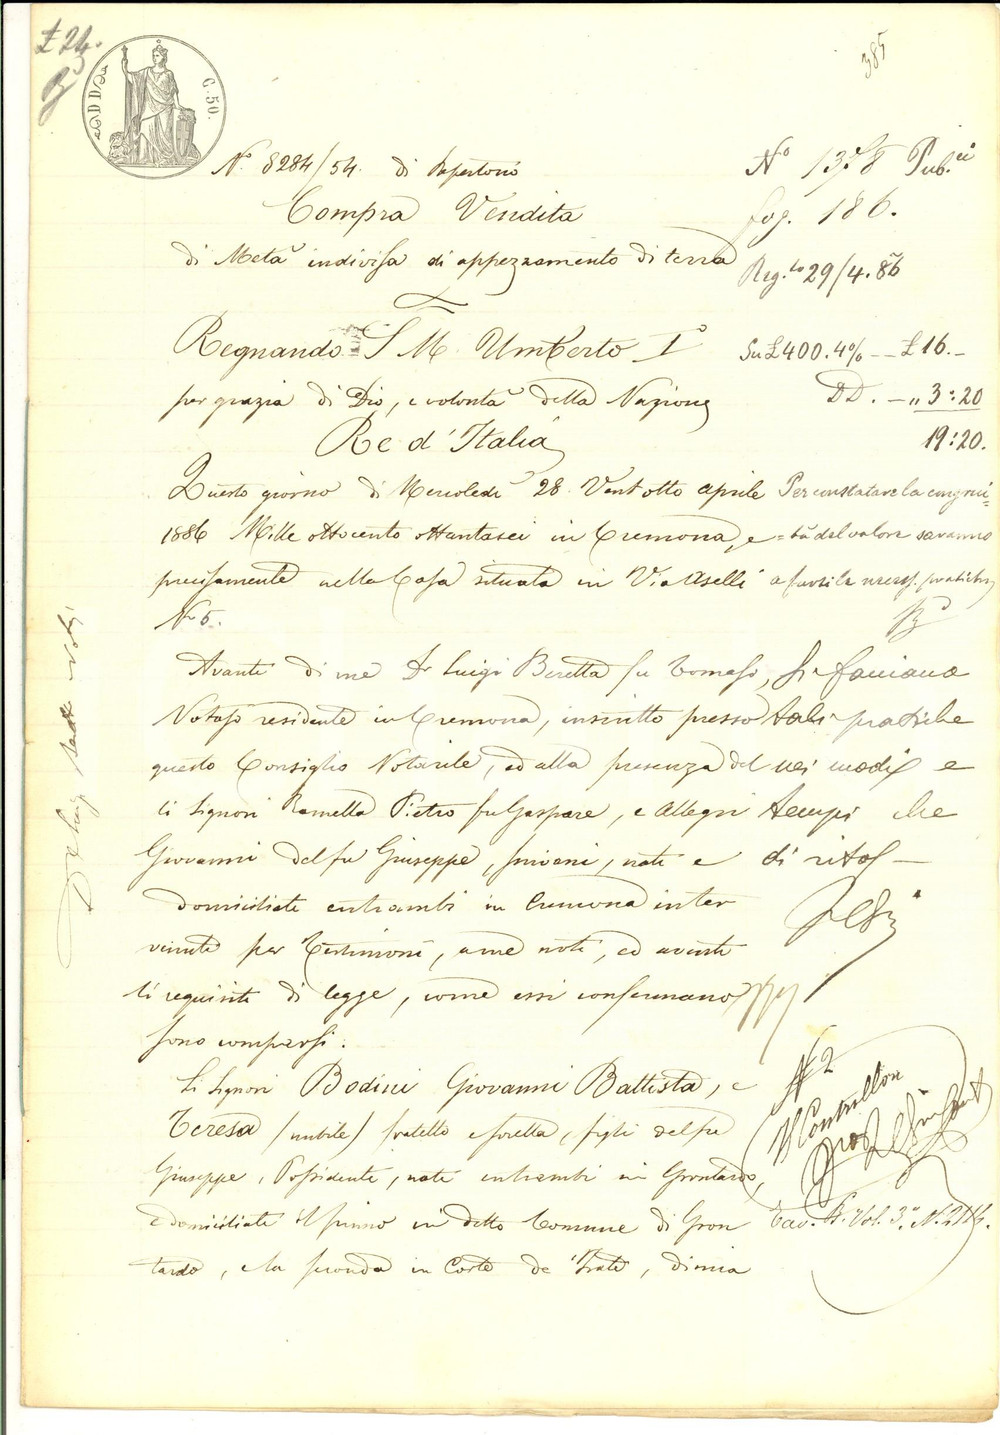 £ 24.
385
C. 50.
N.° 8284/54. di Repertorio
N° 1378 Pub.ci
Compra Vendita
fog. 186.
di Metà indivisa di appezzamento di terra
Reg.to 29/4. 86
Regnando S M Umberto I°
Su £ 400. 4% — £ 16.—
per grazia di Dio, e volontà della Nazione
DD. — „ 3:20
Re d'Italia
19:20.
Questo giorno di Mercoledì 28 Vent'otto aprile
Per constatare la congrui=
1886 Mille ottocento ottantasei in Cremona, e
=tà del valore saranno
precisamente nella Casa situata in Via Aselli
a farsi le necess. pratiche
N° 5.
Avanti di me Dr Luigi Beretta fu Tomaso,
Si faciano
Notajo residente in Cremona, inscritto presso
tali pratiche
questo Consiglio Notarile, ed alla presenza del
nei modi e
li Signori Ramella Pietro fu Gaspare, e Allegri
tempi che
Giovanni del fu Giuseppe, scrivani, nati e
di rito
domiciliati entrambi in Cremona inter
venuti per Testimoni, a me noti, ed aventi
li requisiti di legge, come essi confermano
sono comparsi:
Li Signori Bodini Giovanni Battista, e
N° 2
Il Controllore
Teresa (nubile) fratello e sorella, figli del fu
Giuseppe, Possidenti, nati entrambi in Grontardo,
e domiciliati il primo in detto Comune di Gron
Tav. A. Vol. 3° N.
tardo, e la seconda in Corte de' Frati, dimo